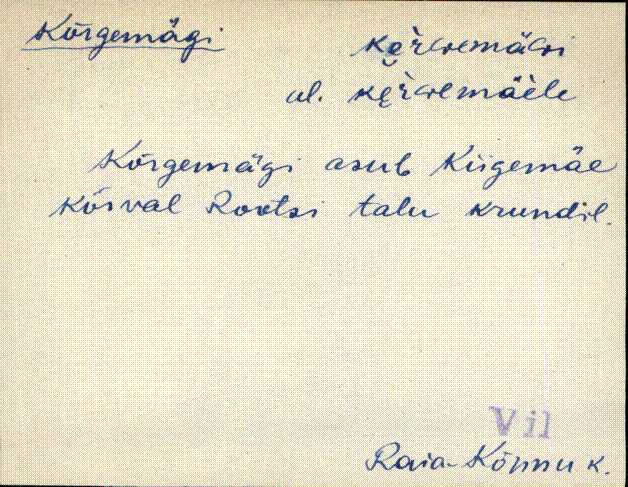 Kõrgemägi kè̮rɢemäɢi
al. kè̮rɢemäele
Kõrgemägi asub Kiigemäe
kõrval Rootsi talu krundil.
Vil
Raia-Kõnnu k.